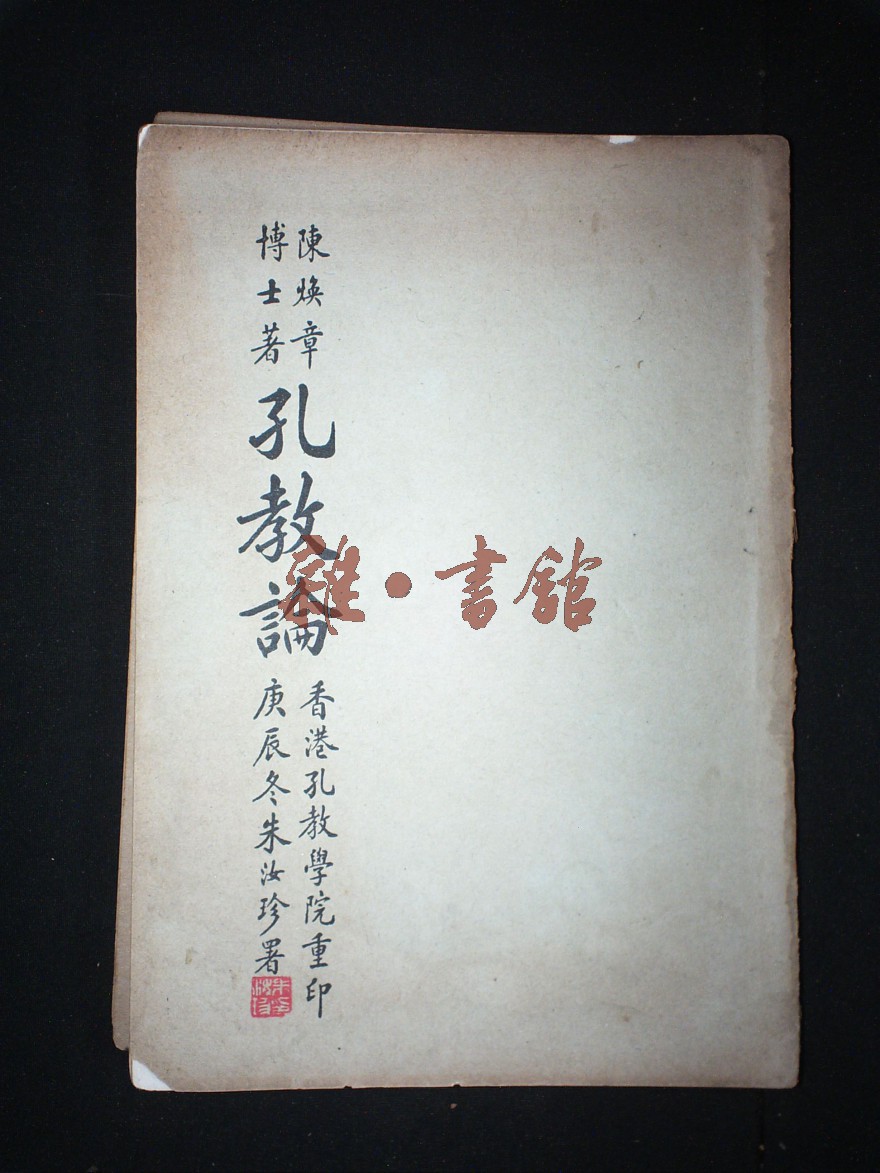 陳煥章
博士著
孔教論
香港孔教學院重印
庚辰冬朱汝珍署
雜·書館